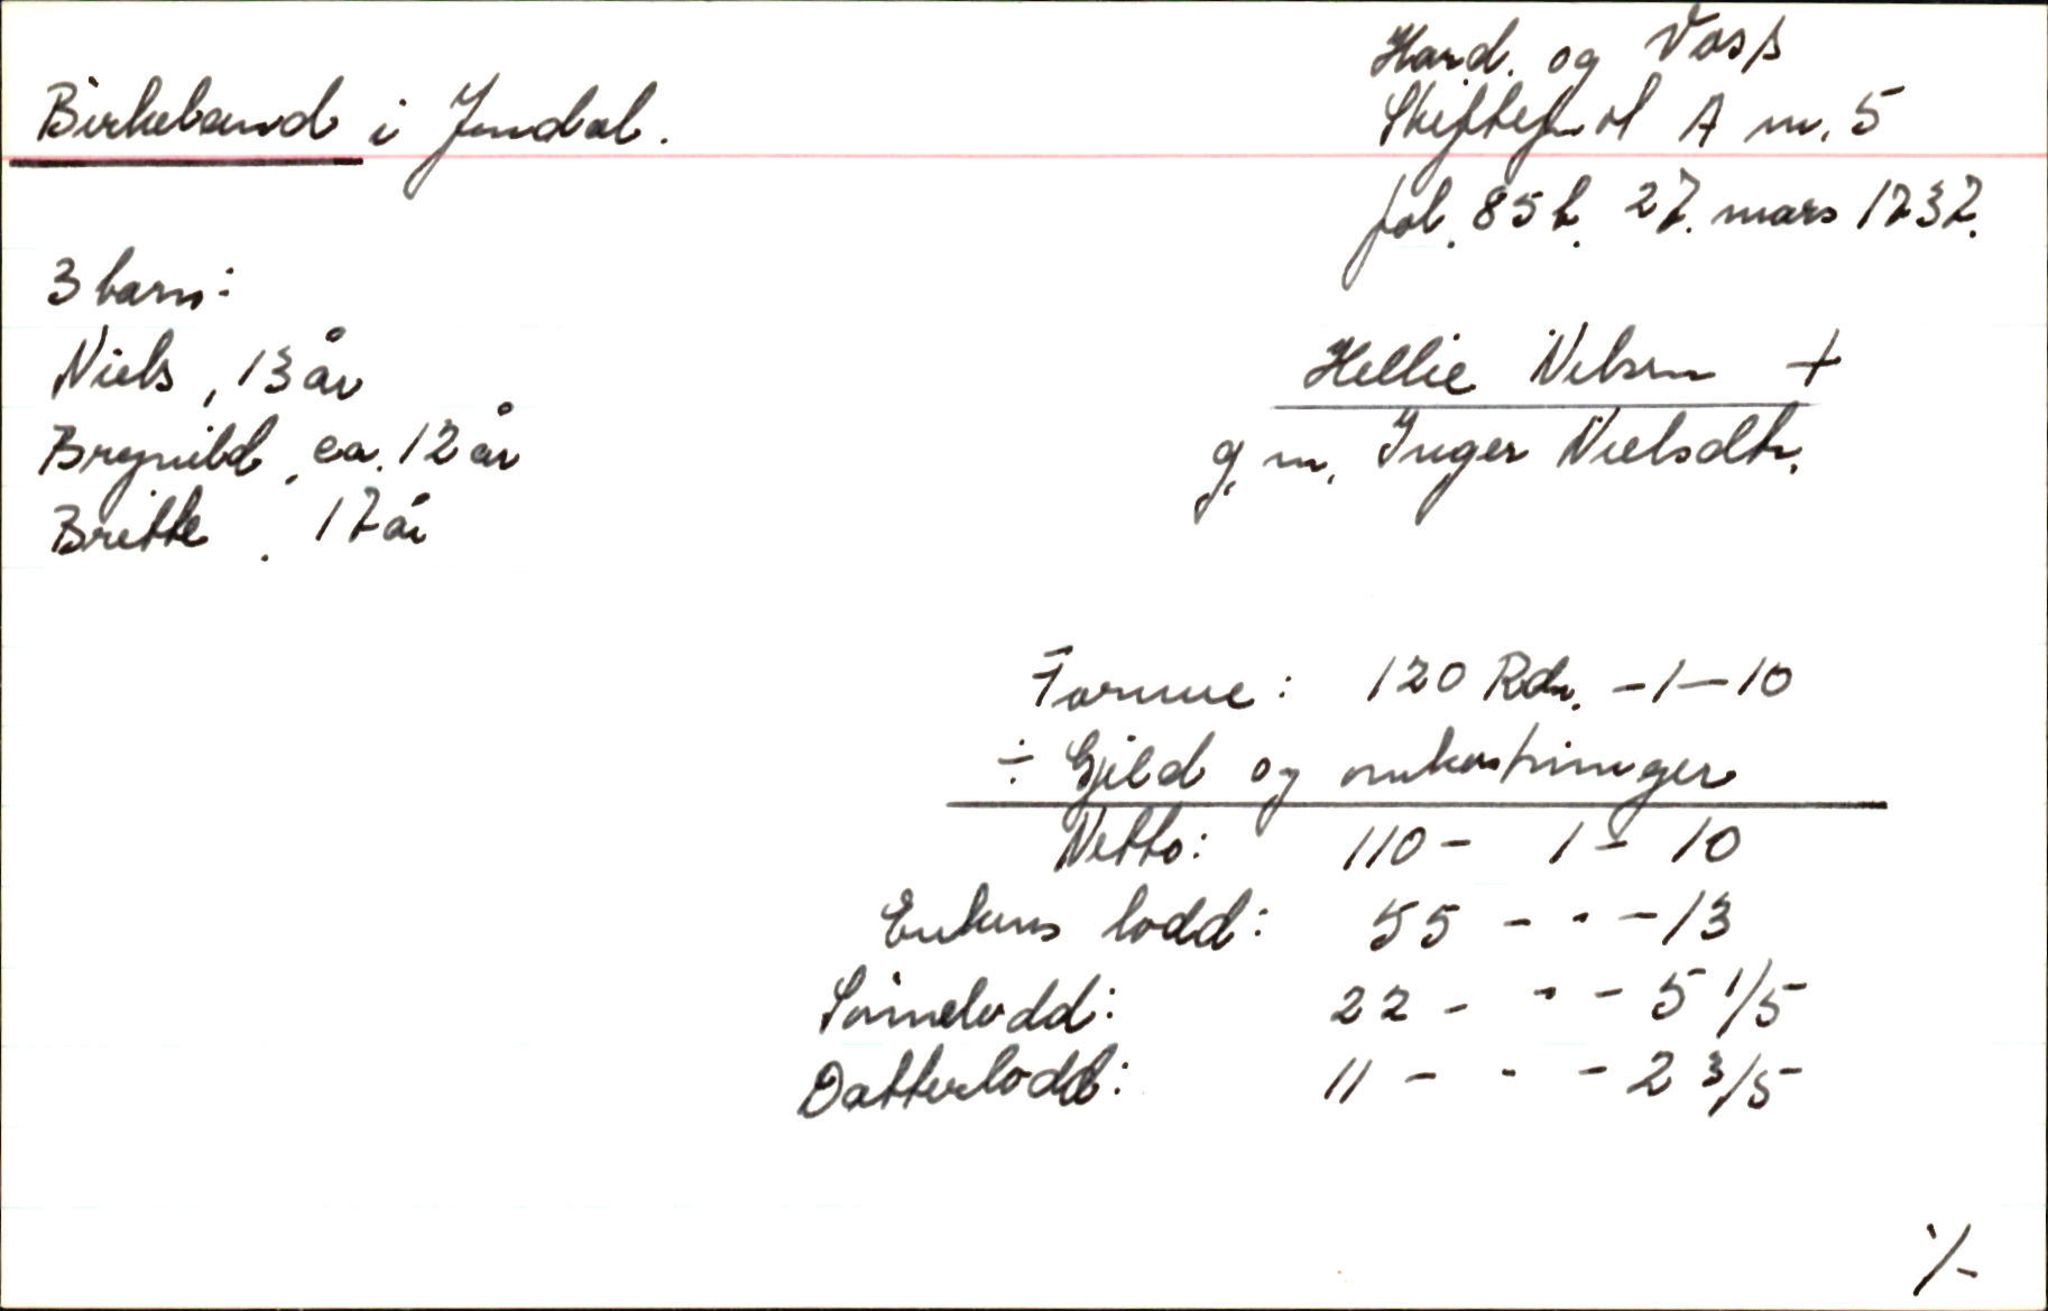 Birkeland i Jondal.
Hard. og Voss
Skifteprot A nr. 5
fol. 85 b. 27. mars 1737.
3 barn:
Niels, 13 år
Brynild, ca. 12 år
Britte, 17 år
Hellie Nilsen +
g. m. Inger Nielsdtr.
Formue: 120 Rdr. - 1 - 10
÷ Gjeld og omkostninger
Netto: 110 - 1 - 10
Enkens lodd: 55 - - - 13
Sønnelodd: 22 - - - 5 1/5
Datterlodd: 11 - - - 2 3/5